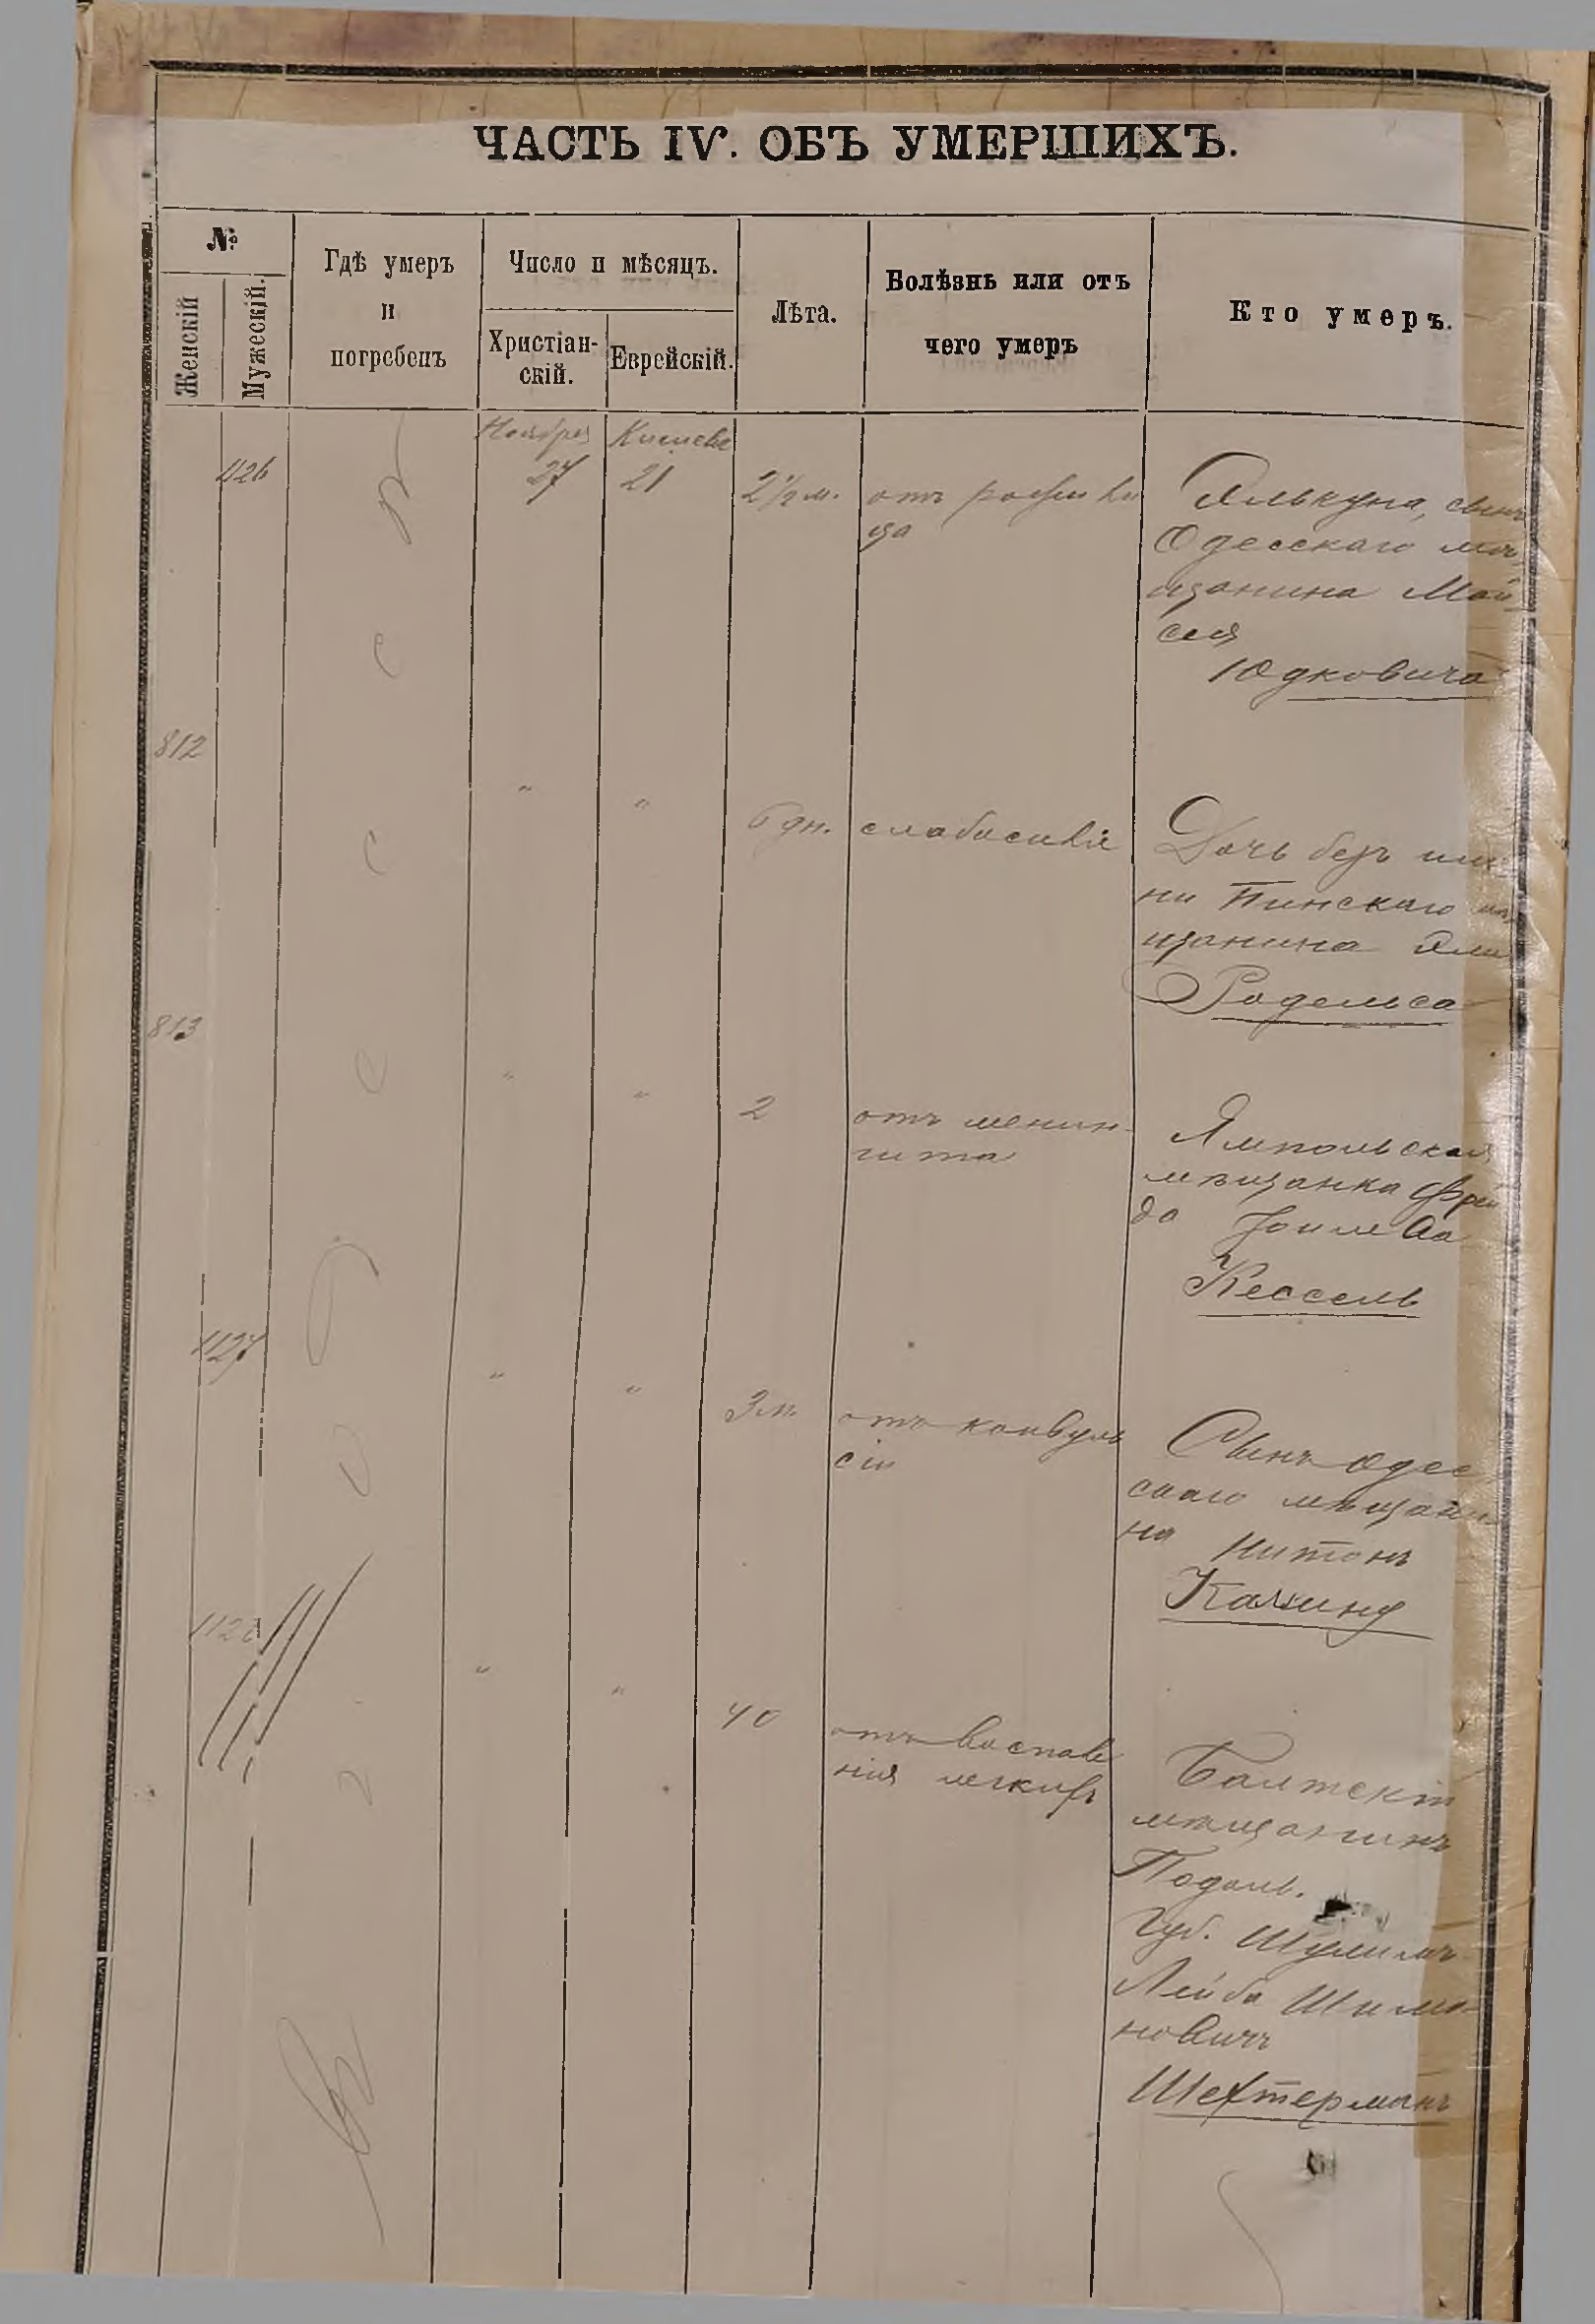 ЧАСТЬ IV. ОБЪ УМЕРШИХЪ.
№
Женскій
Мужескій.
Гдѣ умеръ
и
погребенъ
Число и мѣсяцъ.
Христіан-
скій.
Еврейскій.
Лѣта.
Болѣзнь или отъ
чего умеръ
Кто умеръ.
Ноября
Кислева
1126
27
21
2½ м.
отъ
сынъ
Одесскаго мѣ
щанина Мой
сея
Юдковича
812
"
"
6 дн.
слабосилія
Дочь безъ име
ни Пинскаго мѣ
щанина
Родельса
813
"
"
2
отъ менин-
гита
Ямпольская
мѣщанка Фрей
да
Кессель
1127
"
"
3 м.
отъ конвуль
сіи
Сынъ Одес
скаго мѣщани
на
1128
"
"
40
отъ воспале
нія легкихъ
Балтскій
мѣщанинъ
Подоль.
Губ. Шулимъ
Лейба Шимо-
новичъ
Шехтерманъ
въ г. Одессѣ